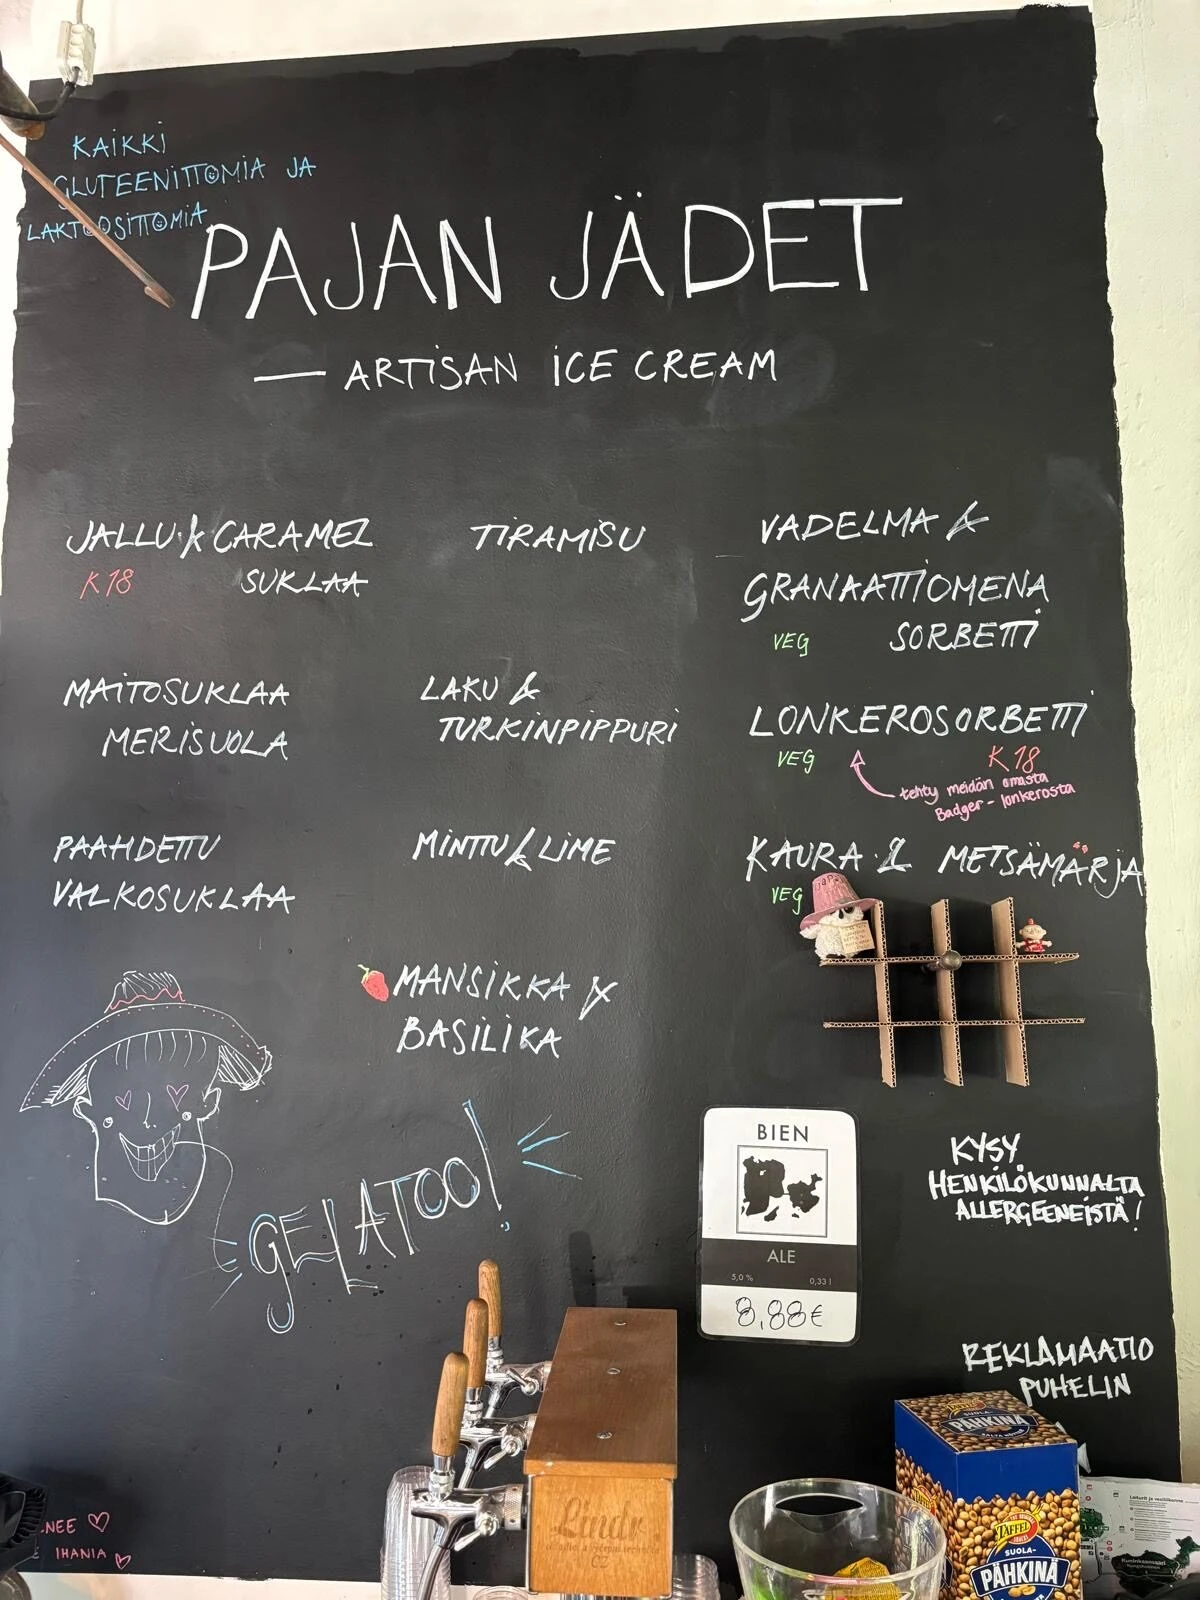 KAIKKI
GLUTEENITTOMIA JA
LAKTOOSITTOMIA
PAJAN JÄDET
— ARTISAN ICE CREAM
JALLU & CARAMEL
K18 SUKLAA
TIRAMISU
VADELMA &
GRANAATTIOMENA
VEG SORBETTI
MAITOSUKLAA
MERISUOLA
LAKU &
TURKINPIPPURI
LONKEROSORBETTI
VEG K18
tehty meidän omasta
Badger-lonkerosta
PAAHDETTU
VALKOSUKLAA
MINTTU & LIME
KAURA & METSÄMARJA
VEG
MANSIKKA &
BASILIKA
GELATOO!
BIEN
ALE
5,0 % 0,33 l
8,88€
KYSY
HENKILÖKUNNALTA
ALLERGEENEISTÄ!
REKLAMAATIO
PUHELIN
SUOLA-
PÄHKINÄ
TAFFEL
SUOLA-
PÄHKINÄ
Linar
CZ
NEE
IHANIA